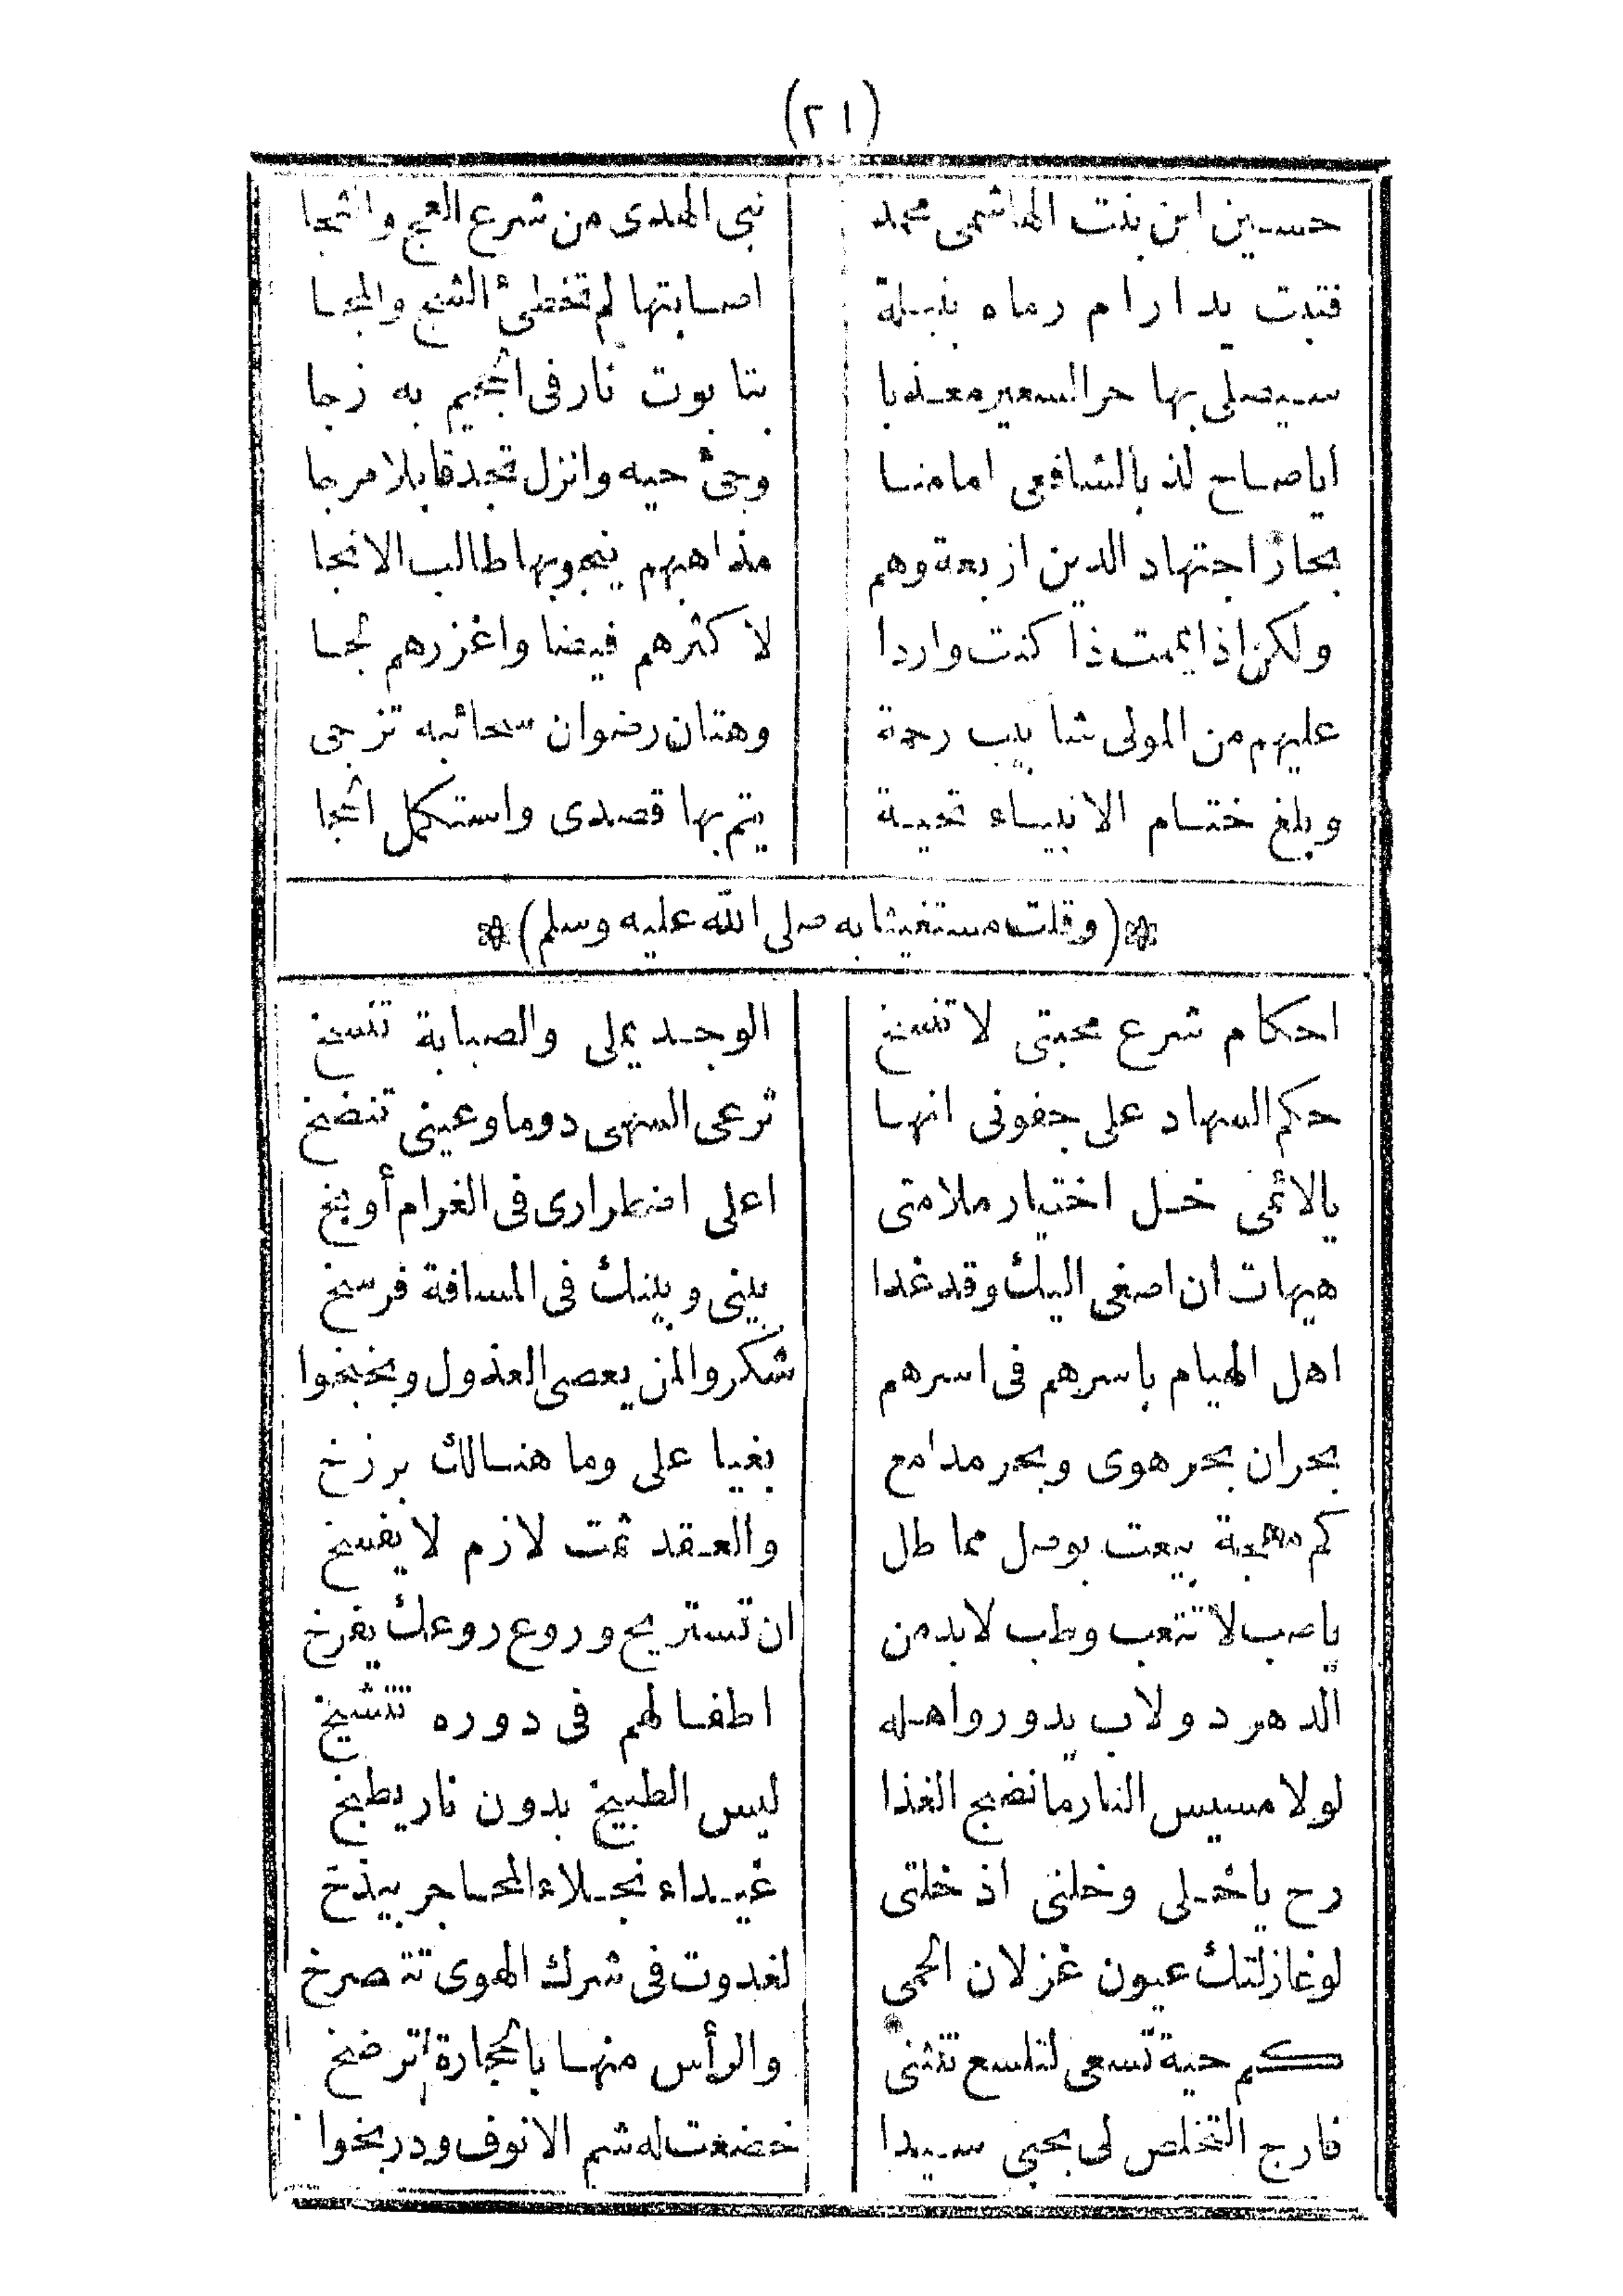 (٢١)
حسين ابن بنت الهاشمى محمد نبى الهدى من شرع العج والثجا
فتبت يدا رام رماه بنبلة اصابتها لم تخطئ الشج والمجا
سيصلى بها حر السعير معذبا بتابوت نار فى الجحيم به زجا
اياصاح لذ بالشافعى امامنا وجئ حيه وانزل تجد قابلا مرجا
بحار اجتهاد الدين اربعة وهم مذاهبهم ينجو بها طالب الانجا
ولكن اذا يممت ذا كنت واردا لاكثرهم فيضا واغزرهم لجا
عليهم من المولى شابيب رحمة وهتان رضوان سحائبه تزجى
وبلغ ختام الانبياء تحية يتم بها قصدى واستكمل الحجا
(وقلت مستغيثا به صلى الله عليه وسلم)
احكام شرع محبتى لا تنسخ الوجد يملى والصبابة تنسخ
حكم السهاد على جفونى انها ترعى السهى دوما وعينى تنضخ
يالائمى خل اختيار ملامتى اعلى اضطرارى فى الغرام أوبخ
هيهات ان اصغى اليك وقد غدا بينى وبينك فى المسافة فرسخ
اهل الهيام باسرهم فى اسرهم شكروا لمن يعصى العذول وبخبخوا
بحران بحر هوى وبحر مدامع بغيا على وما هنالك برزخ
كم مهجة بيعت بوصل مماطل والعقد تمت لازم لا يفسخ
ياصب لا تتعب وطب لابد من ان تستريح وروع روعك يفرخ
الدهر دولاب يدور واهله اطفالهم فى دوره تتشيخ
لولا مسيس النار ما نضج الغذا ليس الطبيخ بدون نار يطبخ
رح ياخلى وخلنى اذ خلتى غيداء نجلاء المحاجر بيذخ
لو غازلتك عيون غزلان الحمى لغدوت فى شرك الهوى تتصرخ
كم حية تسعى لتلسع تنثنى والرأس منها بالحجارة ترضخ
فارج التخلص لى بحبى سيدا خضعت له شم الانوف ودربخوا